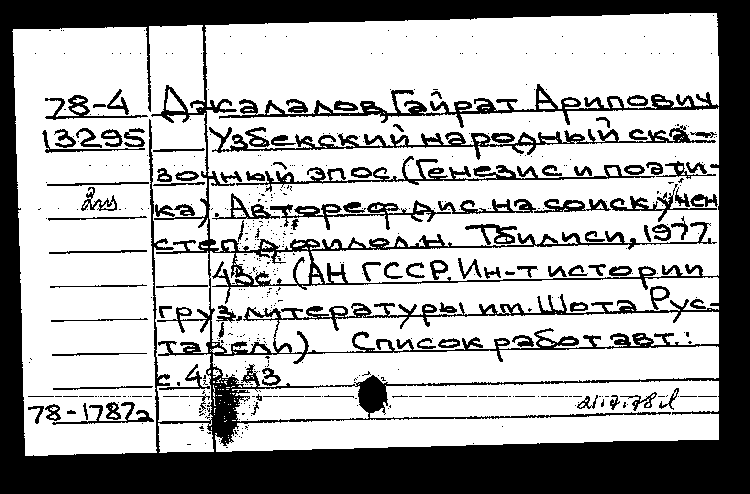 78-4 Джалалов, Гайрат Арипович
13295 Узбекский народный ска-
зочный эпос. (Генезис и поэти-
ка). Автореф. дис. на соиск. учен
степ. д. филол. н. Тбилиси, 1977.
43с. (АН ГССР. Ин-т истории
груз. литературы им. Шота Рус-
тавели). Список работ авт.:
с. 42-43.
78-1787а 21.7.78